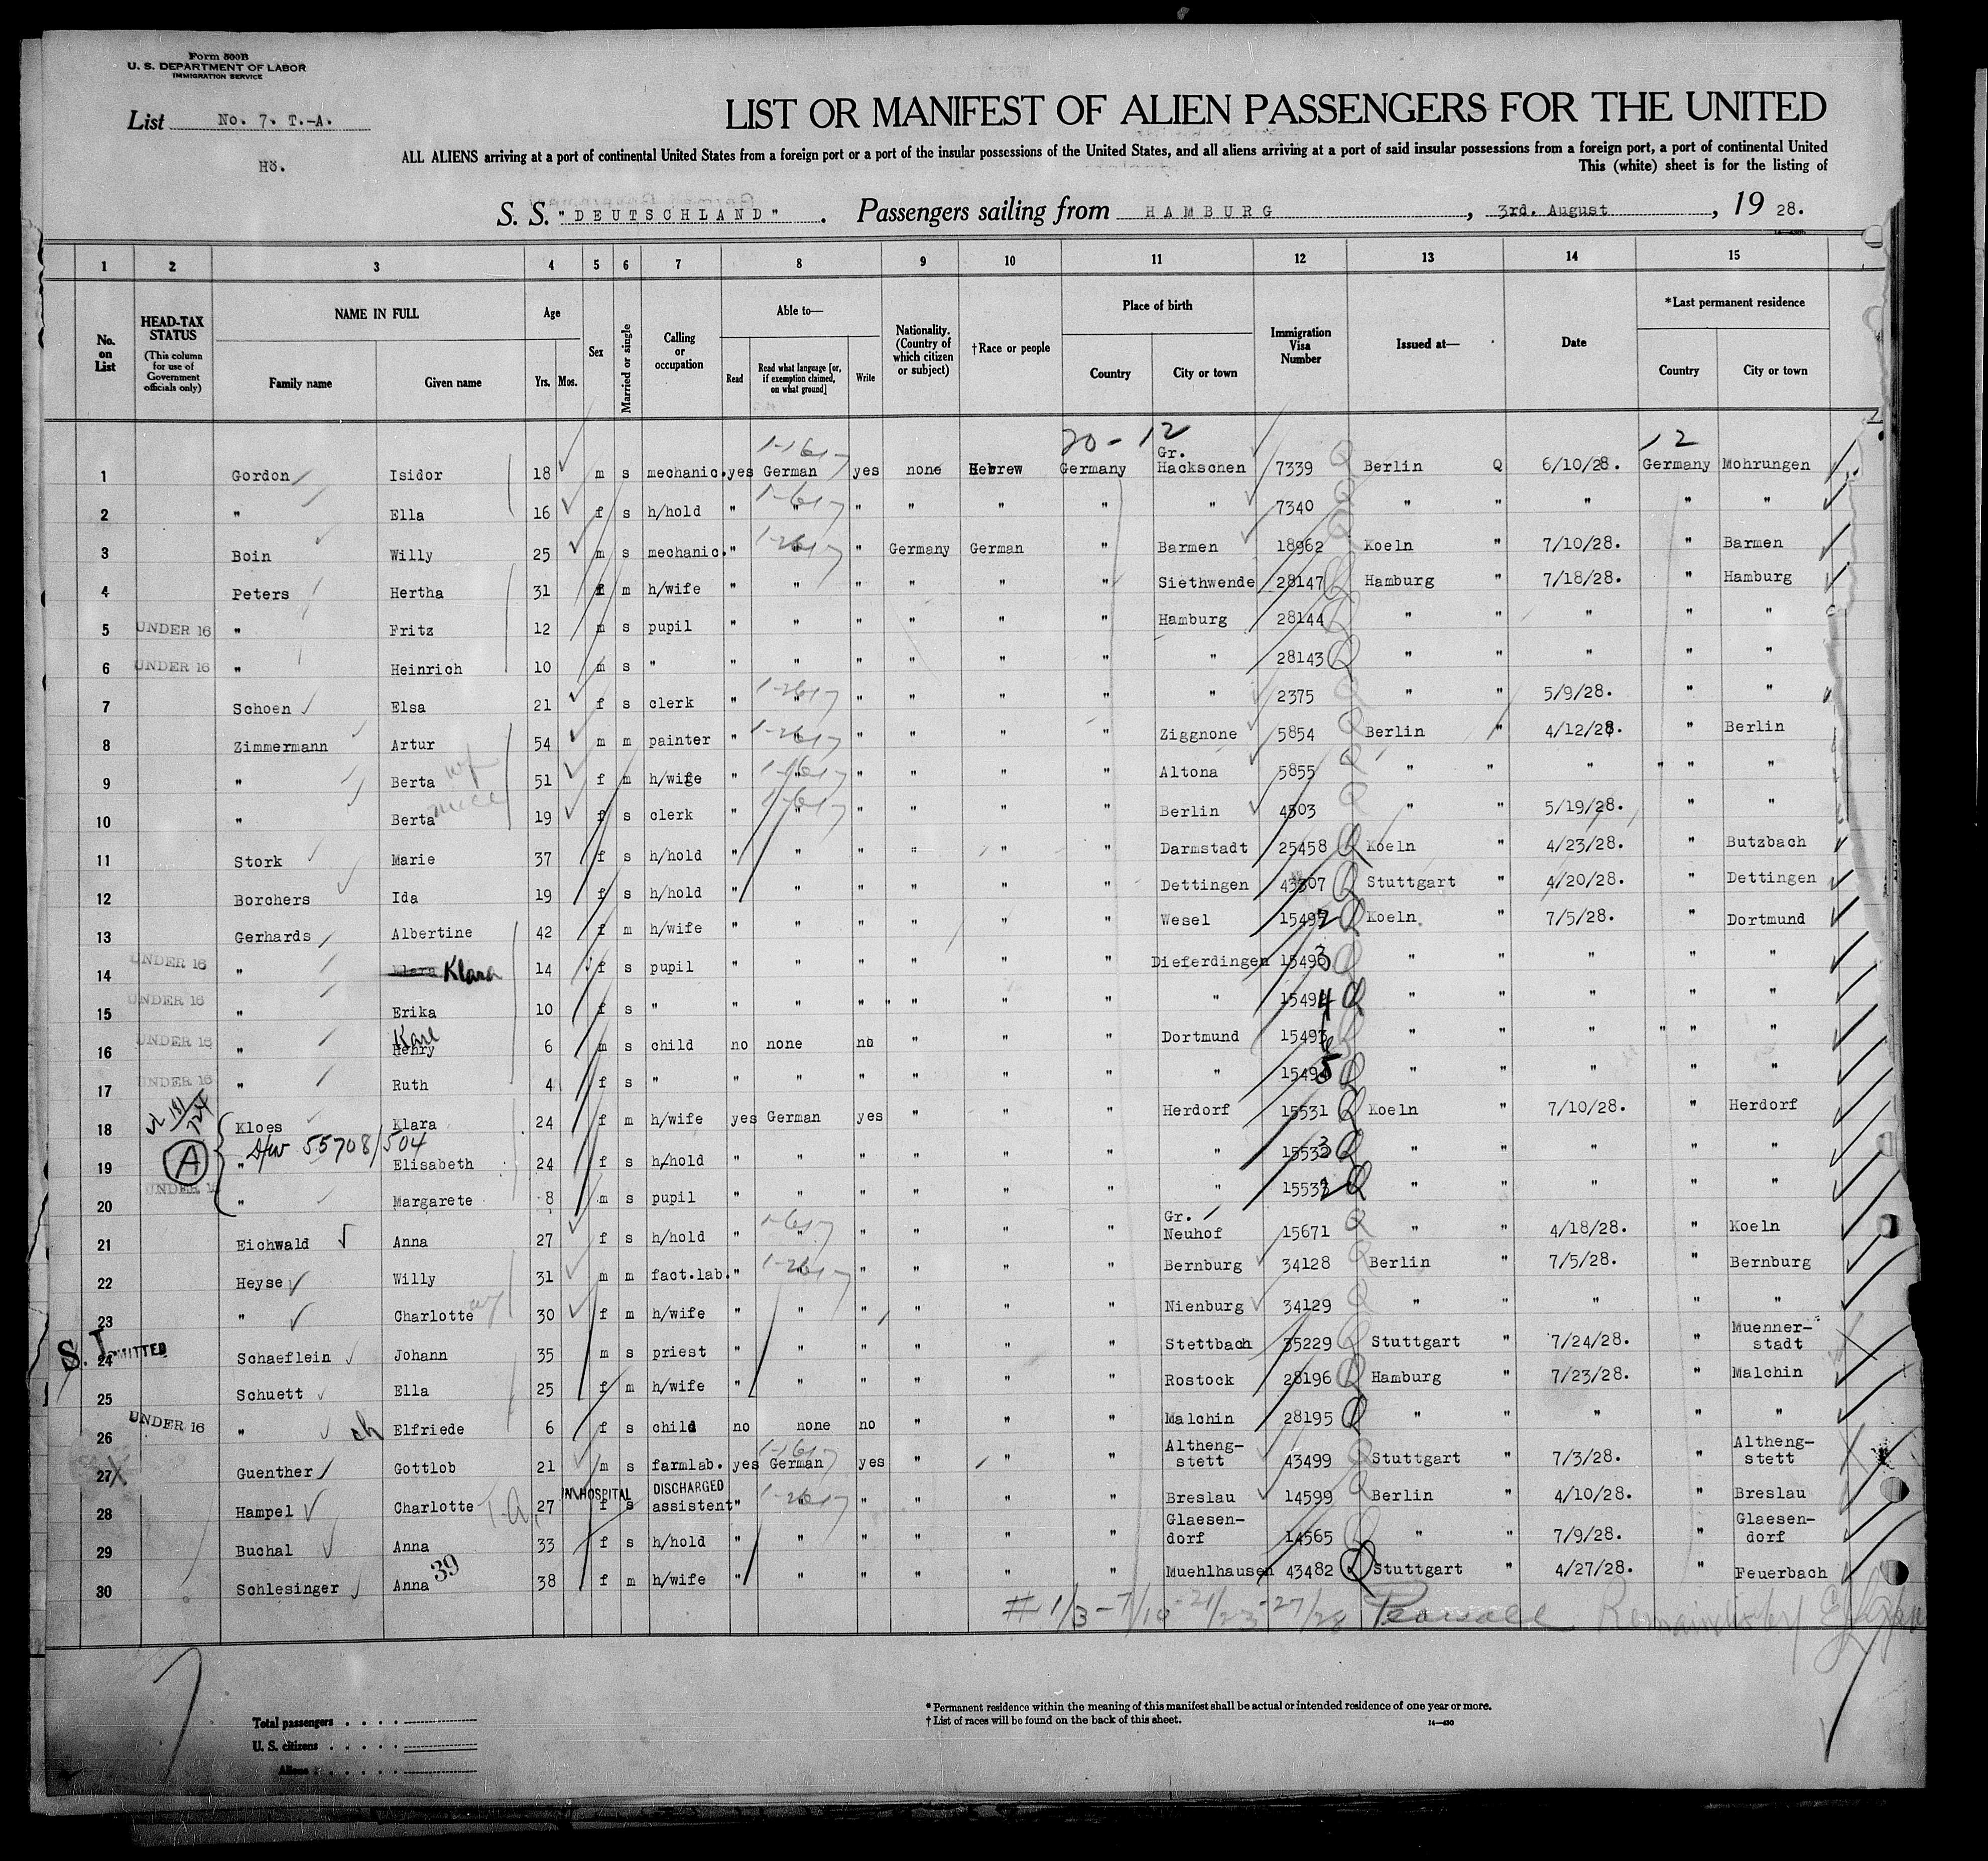 Form 500B
U. S. DEPARTMENT OF LABOR
IMMIGRATION SERVICE
List No. 7. T.-A.
Hö.
LIST OR MANIFEST OF ALIEN PASSENGERS FOR THE UNITED
ALL ALIENS arriving at a port of continental United States from a foreign port or a port of the insular possessions of the United States, and all aliens arriving at a port of said insular possessions from a foreign port, a port of continental United
This (white) sheet is for the listing of
S. S. "DEUTSCHLAND". Passengers sailing from HAMBURG, 3rd. August, 19 28.
1 2 3 4 5 6 7 8 9 10 11 12 13 14 15
No. on List
HEAD-TAX STATUS (This column for use of Government officials only)
NAME IN FULL Family name Given name
Age Yrs. Mos.
Sex
Married or single
Calling or occupation
Able to— Read Read what language [or, if exemption claimed, on what ground] Write
Nationality. (Country of which citizen or subject)
†Race or people
Place of birth Country City or town
Immigration Visa Number
Issued at—
Date
*Last permanent residence Country City or town
20 - 12 12
1 Gordon Isidor 18 m s mechanic. yes German yes none Hebrew Germany Gr. Hackschen 7339 Q Berlin Q 6/10/28. Germany Mohrungen
2 " Ella 16 f s h/hold " " " " " " " 7340 " " " " "
3 Boin Willy 25 m s mechanic. " " " Germany German " Barmen 18962 Koeln " 7/10/28. " Barmen
4 Peters Hertha 31 f m h/wife " " " " " " Siethwende 28147 Hamburg " 7/18/28. " Hamburg
5 UNDER 16 " Fritz 12 m s pupil " " " " " " Hamburg 28144 " " " " "
6 UNDER 16 " Heinrich 10 m s " " " " " " " " 28143 " " " " "
7 Schoen Elsa 21 f s clerk " " " " " " " 2375 " " 5/9/28. " "
8 Zimmermann Artur 54 m m painter " " " " " " Ziggnone 5854 Berlin " 4/12/28. " Berlin
9 " Berta wf 51 f m h/wife " " " " " " Altona 5855 " " " " "
10 " Berta niece 19 f s clerk " " " " " " Berlin 4503 " " 5/19/28. " "
11 Stork Marie 37 f s h/hold " " " " " " Darmstadt 25458 Koeln " 4/23/28. " Butzbach
12 Borchers Ida 19 f s h/hold " " " " " " Dettingen 43307 Stuttgart " 4/20/28. " Dettingen
13 Gerhards Albertine 42 f m h/wife " " " " " " Wesel 15492 Koeln " 7/5/28. " Dortmund
14 UNDER 16 " Klara 14 f s pupil " " " " " " Dieferdingen 15493 " " " " "
15 UNDER 16 " Erika 10 f s " " " " " " " " 15494 " " " " "
16 UNDER 16 " Henry Karl 6 m s child no none no " " " Dortmund 15496 " " " " "
17 UNDER 16 " Ruth 4 f s " " " " " " " " 15495 " " " " "
18 Kloes Klara 24 f m h/wife yes German yes " " " Herdorf 15531 Koeln " 7/10/28. " Herdorf
55708/504
19 A " Elisabeth 24 f s h/hold " " " " " " " 15533 " " " " "
20 UNDER 16 " Margarete 8 m s pupil " " " " " " " 15532 " " " " "
21 Eichwald Anna 27 f s h/hold " " " " " " Gr. Neuhof 15671 " " 4/18/28. " Koeln
22 Heyse Willy 31 m m fact.lab. " " " " " " Bernburg 34128 Berlin " 7/5/28. " Bernburg
23 " Charlotte wf 30 f m h/wife " " " " " " Nienburg 34129 " " " " "
S. I. ADMITTED
24 Schaeflein Johann 35 m s priest " " " " " " Stettbach 35229 Stuttgart " 7/24/28. " Muennerstadt
25 Schuett Ella 25 f m h/wife " " " " " " Rostock 28196 Hamburg " 7/23/28. " Malchin
26 UNDER 16 " ch Elfriede 6 f s child no none no " " " Malchin 28195 " " " " "
27 Guenther Gottlob 21 m s farmlab. yes German yes " " " Altheng-stett 43499 Stuttgart " 7/3/28. " Altheng-stett
IN HOSPITAL DISCHARGED
28 Hampel Charlotte 27 f s assistent " " " " " " Breslau 14599 Berlin " 4/10/28. " Breslau
29 Buchal Anna 33 f s h/hold " " " " " " Glaesen-dorf 14565 " " 7/9/28. " Glaesen-dorf
30 Schlesinger Anna 39 38 f m h/wife " " " " " " Muehlhausen 43482 Stuttgart " 4/27/28. " Feuerbach
Total passengers
U. S. citizens
Aliens
*Permanent residence within the meaning of this manifest shall be actual or intended residence of one year or more.
†List of races will be found on the back of this sheet.
14—430